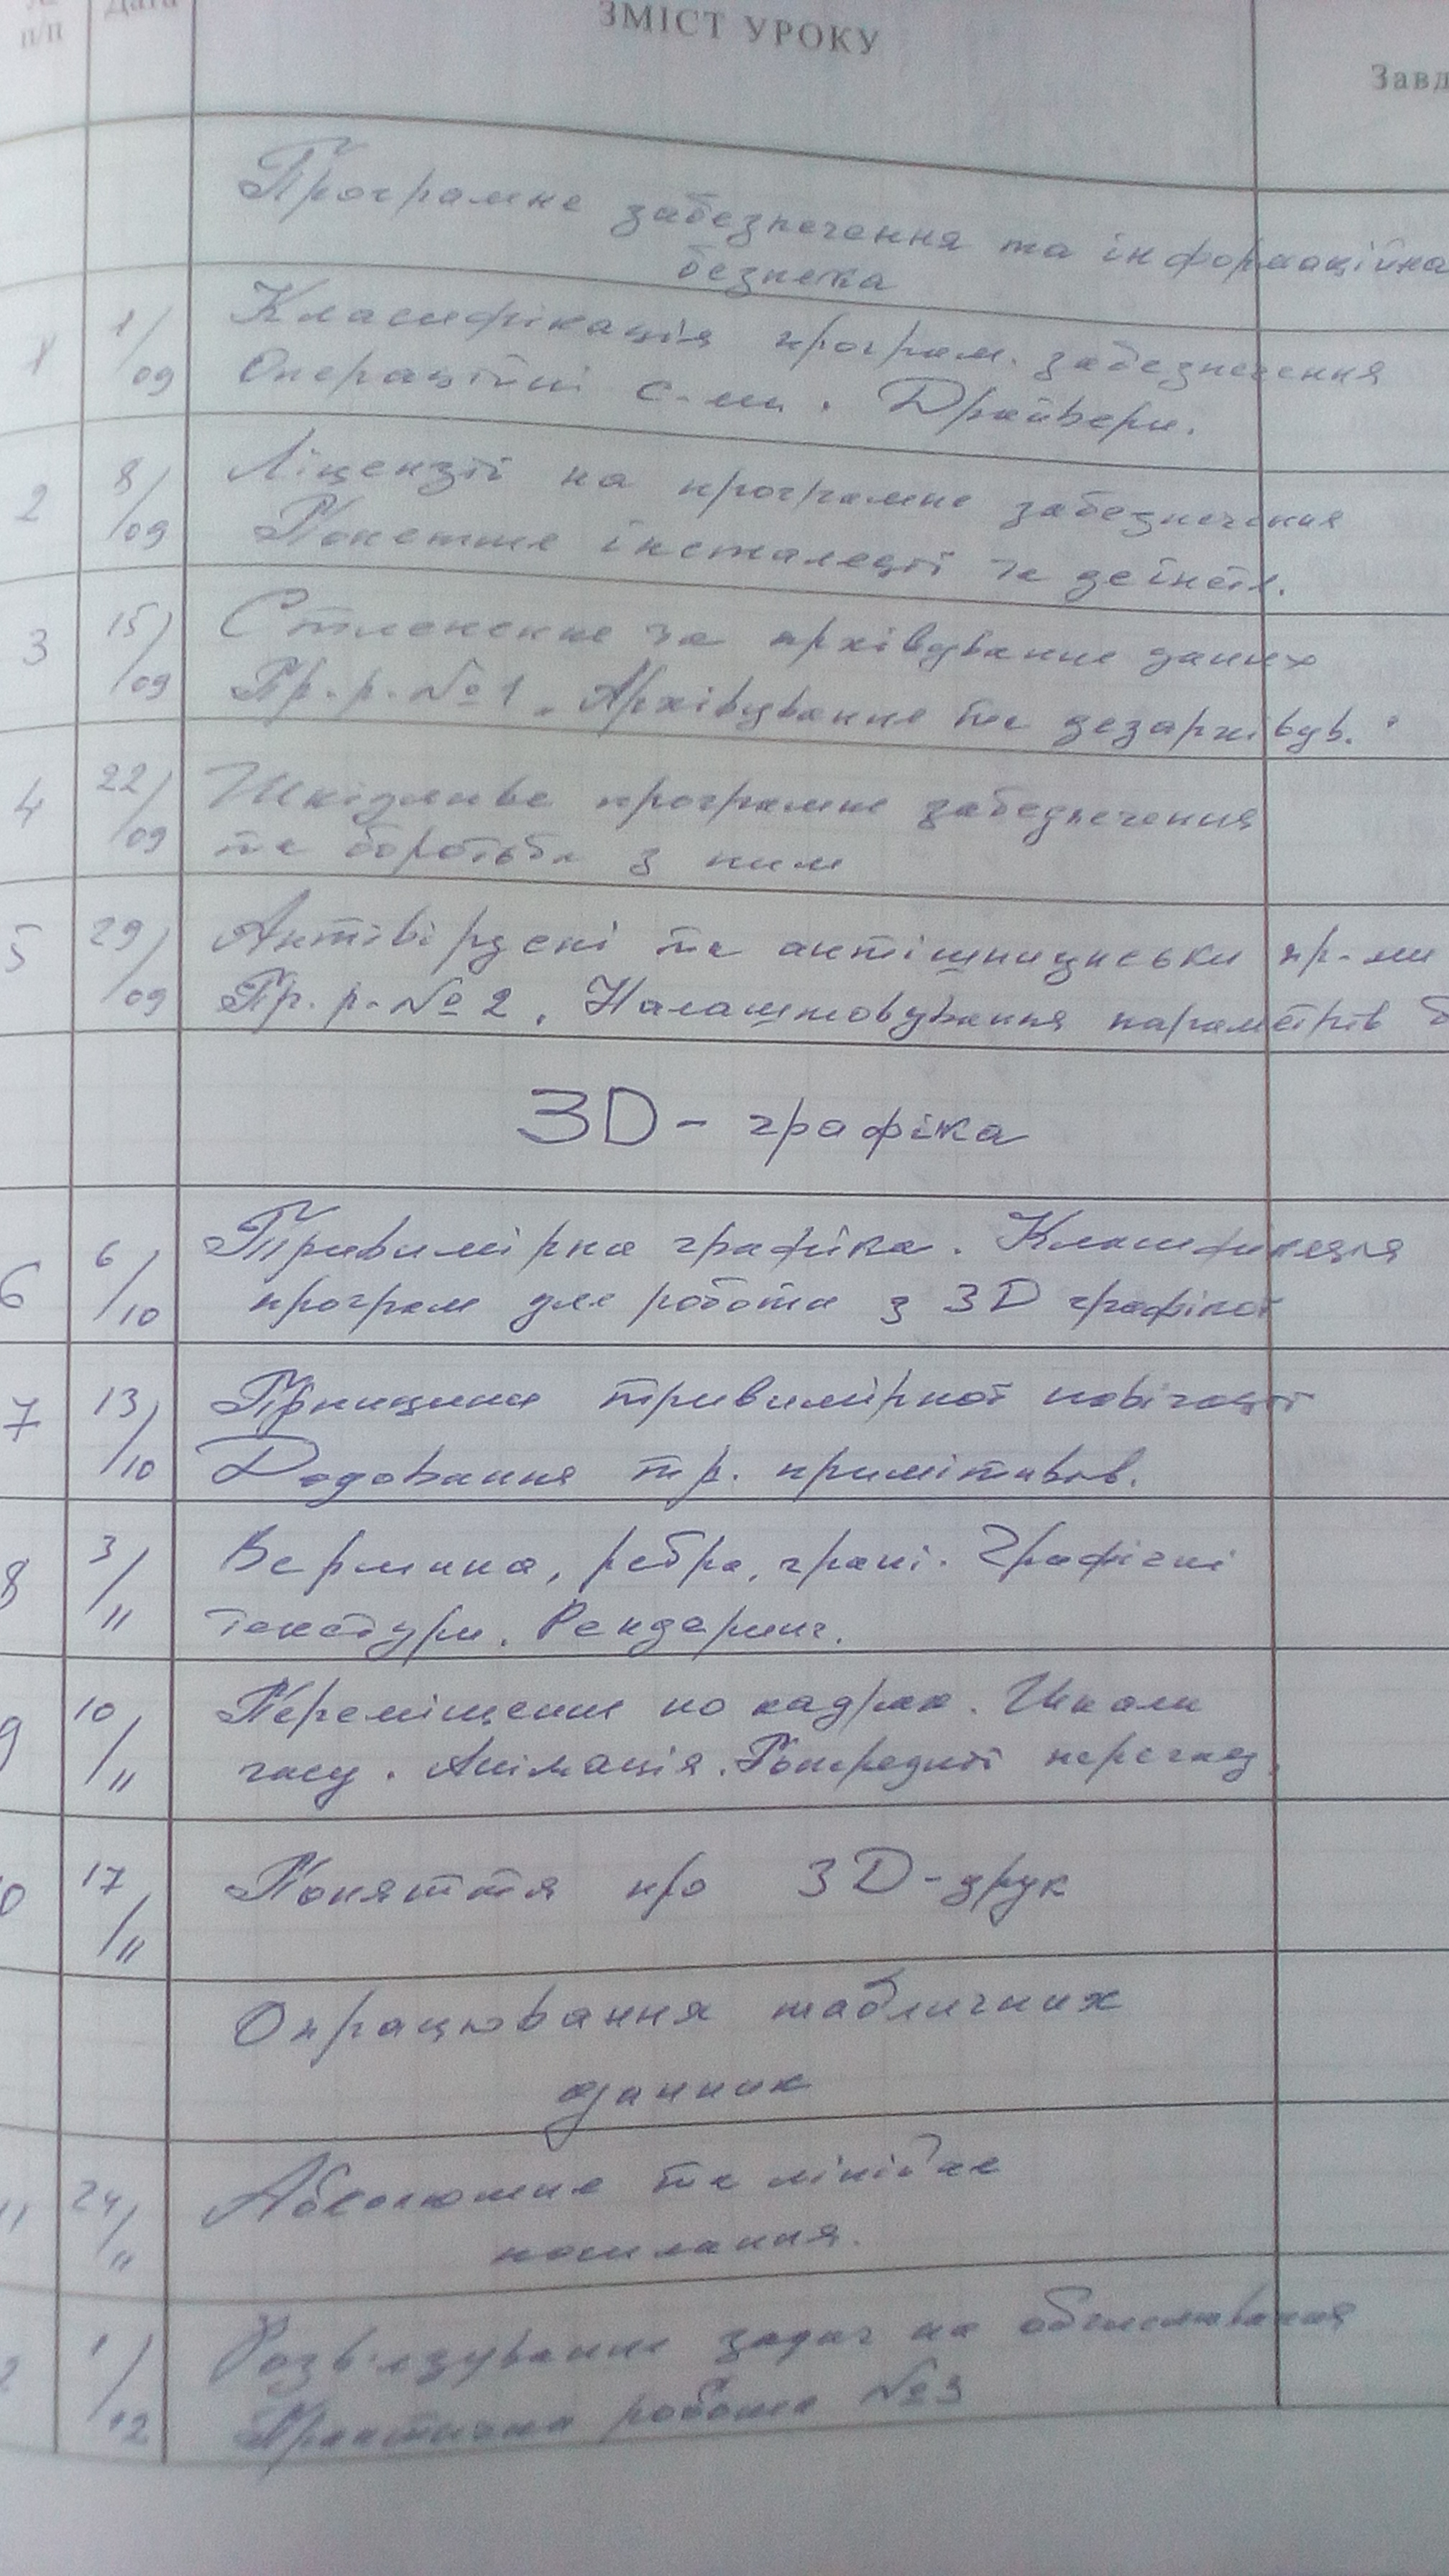 п/п
Дата
ЗМІСТ УРОКУ
Завд
Програмне забезпечення та інформаційна
безпека
1 1/09 Класифікація програм. забезпечення
Операційні с-ми. Драйвери.
2 8/09 Ліцензії на програмне забезпечення
Поняття інсталяції та деінстал.
3 15/09 Стиснення та архівування даних
Пр. р. №1 „Архівування та дезархівув."
4 22/09 Шкідливе програмне забезпечення
та боротьба з ним
5 29/09 Антивірусні та антишпигунські пр-ми
Пр. р. №2. Налаштовування параметрів б
3D - графіка
6 6/10 Тривимірна графіка. Класифікація
програм для роботи з 3D графікої
7 13/10 Принципи тривимірної навігації
Додавання тр. примітивів.
8 3/11 Вершина, ребра, грані. Графічні
текстури. Рендеринг.
9 10/11 Переміщення по кадрах. Шкали
часу. Анімація. Попередній перегляд.
0 17/11 Поняття про 3D-друк
Опрацювання табличних
данних
11 24/11 Абсолютне та лінійне
посилання.
2 1/12 Розв'язування задач на обчислювання
Практична робота №3